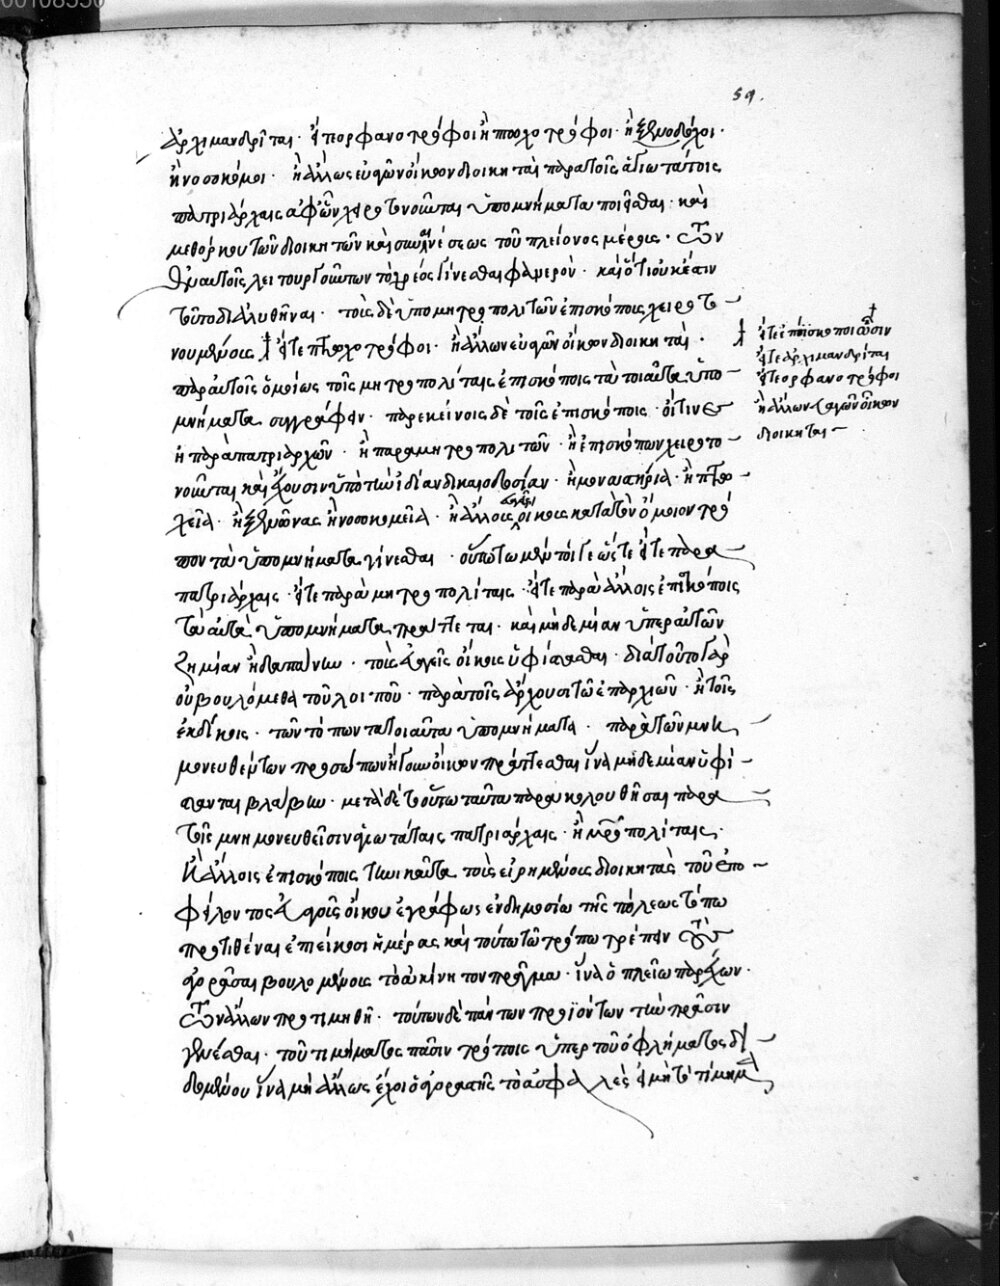 59.
ἀρχιμανδρῖται· εἴτε ὀρφανοτρόφοι ἢ πτωχοτρόφοι· ἢ ξενοδόχοι·
ἢ νοσοκόμοι· ἢ ἄλλως εὐαγῶν οἴκων διοικηταὶ παρὰ τοῖς ἁγιωτάτοις
πατριάρχαις ἀφ' ὧν χειροτονοῦνται ὑπομνήματα ποιεῖσθαι· καὶ
μεθ' ὅρκου τῶν διοικητῶν καὶ συναινέσεως τοῦ πλείονος μέρους· τῶν
ἐν αὐτοῖς λειτουργούντων τὸ χρέος γίνεσθαι φανερὸν· καὶ ὅτι οὐκ ἔστιν
τοῦτο διαλυθῆναι· τοὺς δὲ ὑπὸ μητροπολιτῶν ἐπισκόπους χειροτο
νουμένους εἴτε πτωχοτρόφοι· ἢ ἄλλων εὐαγῶν οἴκων διοικηταὶ·
παρ' αὐτοῖς ὁμοίως τοῖς μητροπολίταις ἐπισκόποις τὰ τοιαῦτα ὑπο
μνήματα συγγράφειν· παρ' ἐκείνοις δὲ τοῖς ἐπισκόποις· οἵτινες
ἢ παρὰ πατριαρχῶν· ἢ παρὰ μητροπολιτῶν· ἢ ἐπισκόπων χειροτο
νοῦνται καὶ ἔχουσιν ὑπὸ τὴν ἰδίαν δικαιοδοσίαν· ἢ μοναστήρια· ἢ πτω
χεῖα· ἢ ξενῶνας ἢ νοσοκομεῖα· ἢ ἄλλους εὐαγεῖς οἴκους κατὰ τὸν ὅμοιον τρό
πον τὰ ὑπομνήματα γίνεσθαι· οὕτω μέντοι γε ὥστε εἴτε παρὰ
πατριάρχαις· εἴτε παρὰ μητροπολίταις· εἴτε παρὰ ἄλλοις ἐπισκόποις
τὰ αὐτὰ ὑπομνήματα πράττεται· καὶ μηδεμίαν ὑπὲρ αὐτῶν
ζημίαν ἢ δαπάνην· τοὺς εὐαγεῖς οἴκους ὑφίστασθαι· διὰ τοῦτο γὰρ
οὐ βουλόμεθα τοῦ λοιποῦ· παρὰ τοῖς ἄρχουσι τῶν ἐπαρχιῶν· ἢ τοῖς
ἐκδίκοις· τῶν τόπων τὰ τοιαῦτα ὑπομνήματα· παρὰ τῶν μνη
μονευθέντων προσώπων ἤγουν οἴκων πράττεσθαι ἵνα μηδεμίαν ὑφί
στανται βλάβην· μετὰ δὲ τοῦτο ταῦτα παρακολουθῆσαι παρὰ
τοῖς μνημονευθεῖσιν ἁγιωτάταις πατριάρχαις· ἢ μητροπολίταις·
ἢ ἄλλοις ἐπισκόποις τηνικαῦτα τοὺς εἰρημένους διοικητὰς τοῦ ἐπο
φείλοντος εὐαγοῦς οἴκου ἐγγράφως ἐν δημοσίω τῆς πόλεως τόπω
προτιθέναι ἐπὶ εἴκοσι ἡμέρας καὶ τούτω τῶ τρόπω τρέπειν τοὺς
ἀγοράσαι βουλομένους τὸ ἀκίνητον πρᾶγμα· ἵνα ὁ πλείω παρέχων·
τῶν ἄλλων προτιμηθῆ· τούτων δὲ πάντων προϊόντων τὴν πρᾶσιν
γενέσθαι· τοῦ τιμήματος πᾶσιν τρόποις ὑπὲρ τοῦ ὀφλήματος δι
δομένου ἵνα μὴ ἄλλως ἔχοι ὁ ἀγοραστὴς τὸ ἀσφαλὲς εἰ μὴ τὸ τίμημα
εἴτε ἐπίσκοποι ὦσιν
εἴτε ἀρχιμανδρῖται
εἴτε ὀρφανοτρόφοι
ἢ ἄλλων εὐαγῶν οἴκων
διοικηταὶ